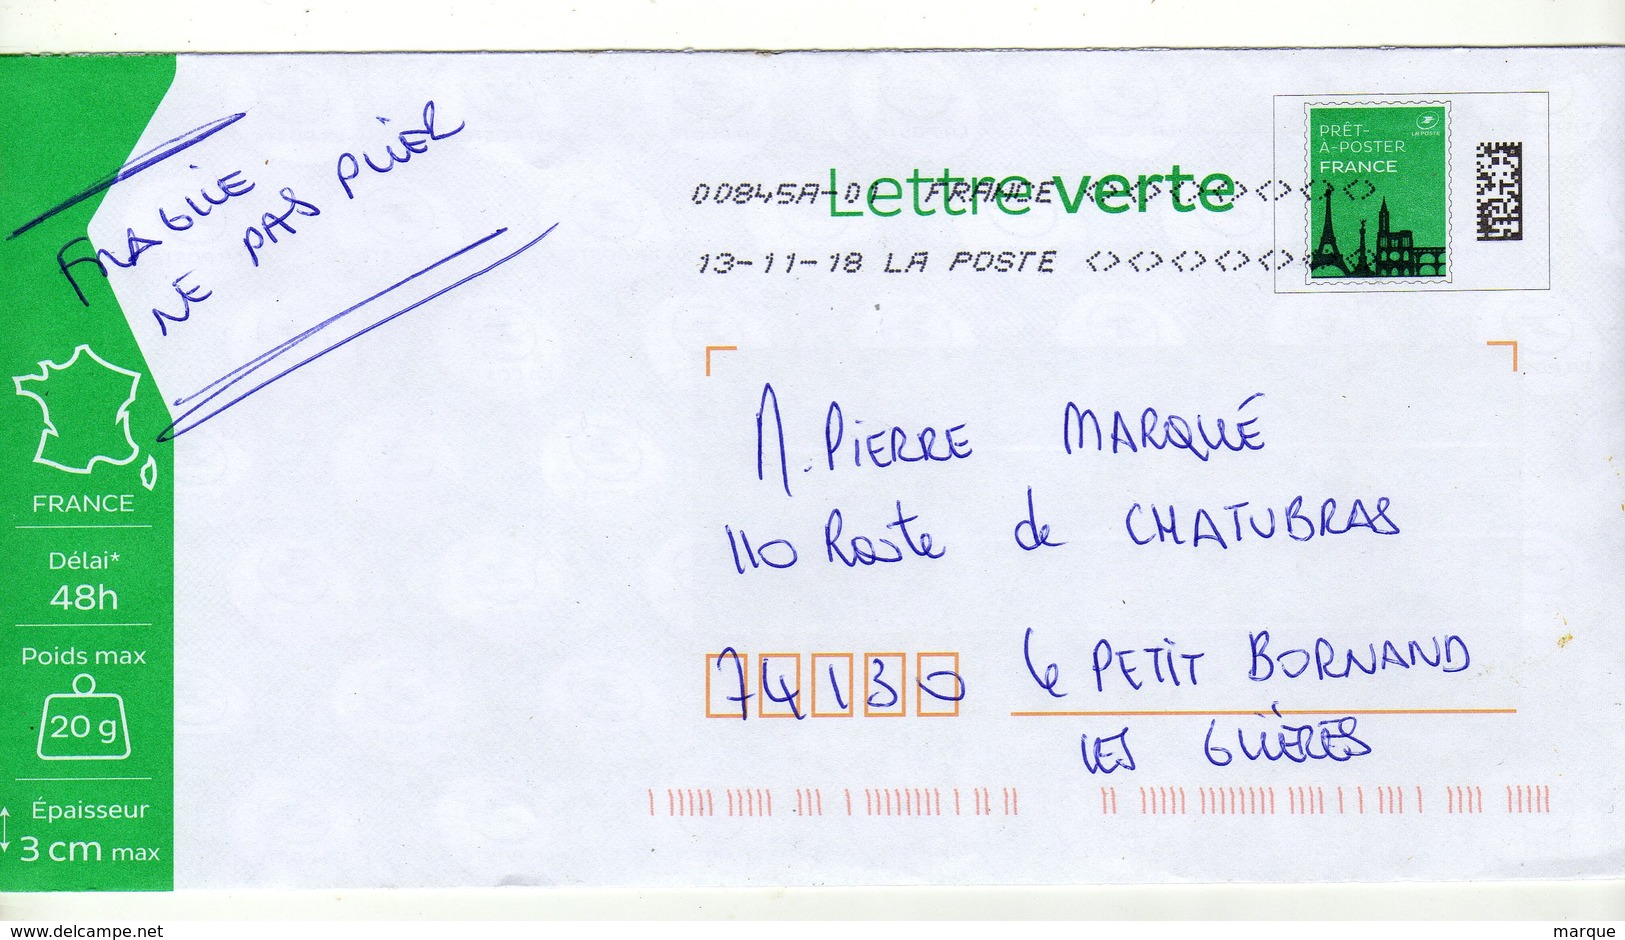 FRAGILE
NE PAS PLIER
00845A-01 FRANCE <><><><><><><>
Lettre verte
13-11-18 LA POSTE <><><><><><><>
PRÊT-
À-POSTER
FRANCE
LA POSTE
M. PIERRE MARQUÉ
110 Route de CHATUBRAS
74130 Le PETIT BORNAND
LES GLIÈRES
FRANCE
Délai*
48h
Poids max
20 g
Épaisseur
3 cm max
www.delcampe.net
marque